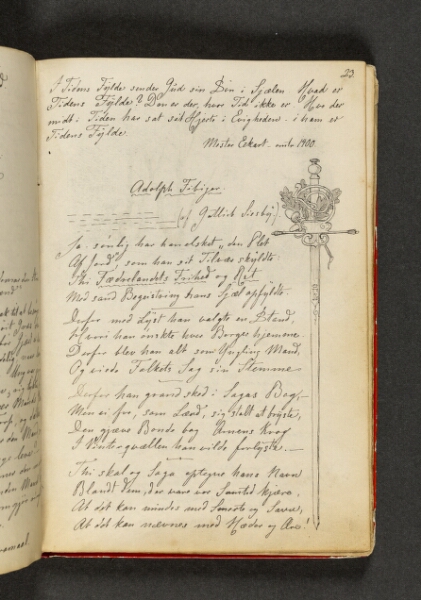 23.
I Tidens Fylde sender Gud sin Søn i Sjælen Hvad er
Tidens Fylde? Den er der, hvor Tid ikke er Hvo der
midt i Tiden har sat sit Hjerte i Evigheden i ham er
Tidens Fylde.
Mester Eckart.
Adolph Fibiger.
(af Gottlieb Siesby.)
Ja sønlig har han elsket „den Plet
Af Jord", som han sit Tilvær skyldte.
Thi Fædrelandets Frihed og Ret
Med sand Begeistring hans Sjæl opfyldte.
Derfor med Lyst han valgte en Stand,
hvori han ønskte hver Borger hjemme.
Derfor blev han alt som Yngling Mand,
Og viede Folkets Sag sin Stemme
Derfor han gravided i Sagas Bog,
Men ei for, som Lærd, sig stolt at bryste,
Den gjæve Bonde bag Arnens Krog
I Vinterqvællen han vilde forlyste.
Thi skal og Saga optegne hans Navn
Blandt dem, der vare vor Samtid kjære,
At det kan mindes med Smerte og Savn,
At det kan nævnes med Hæder og Ære!